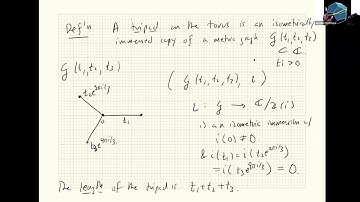 Def'n A tripod on the torus is an isometrically
immersed copy of a metric graph G(t₁,t₂,t₃)
⊂ ℂ.
tᵢ>0
G(t₁,t₂,t₃)
(G(t₁,t₂,t₃), i)
t₂e^{2πi/3}
0
t₁
t₃e^{4πi/3}
i: G → ℂ/ℤ(i)
is an isometric immersion w/
i(0) ≠ 0.
& i(t₁) = i(t₂e^{2πi/3})
= i(t₃e^{4πi/3}) = 0.
The length of the tripod is t₁+t₂+t₃.